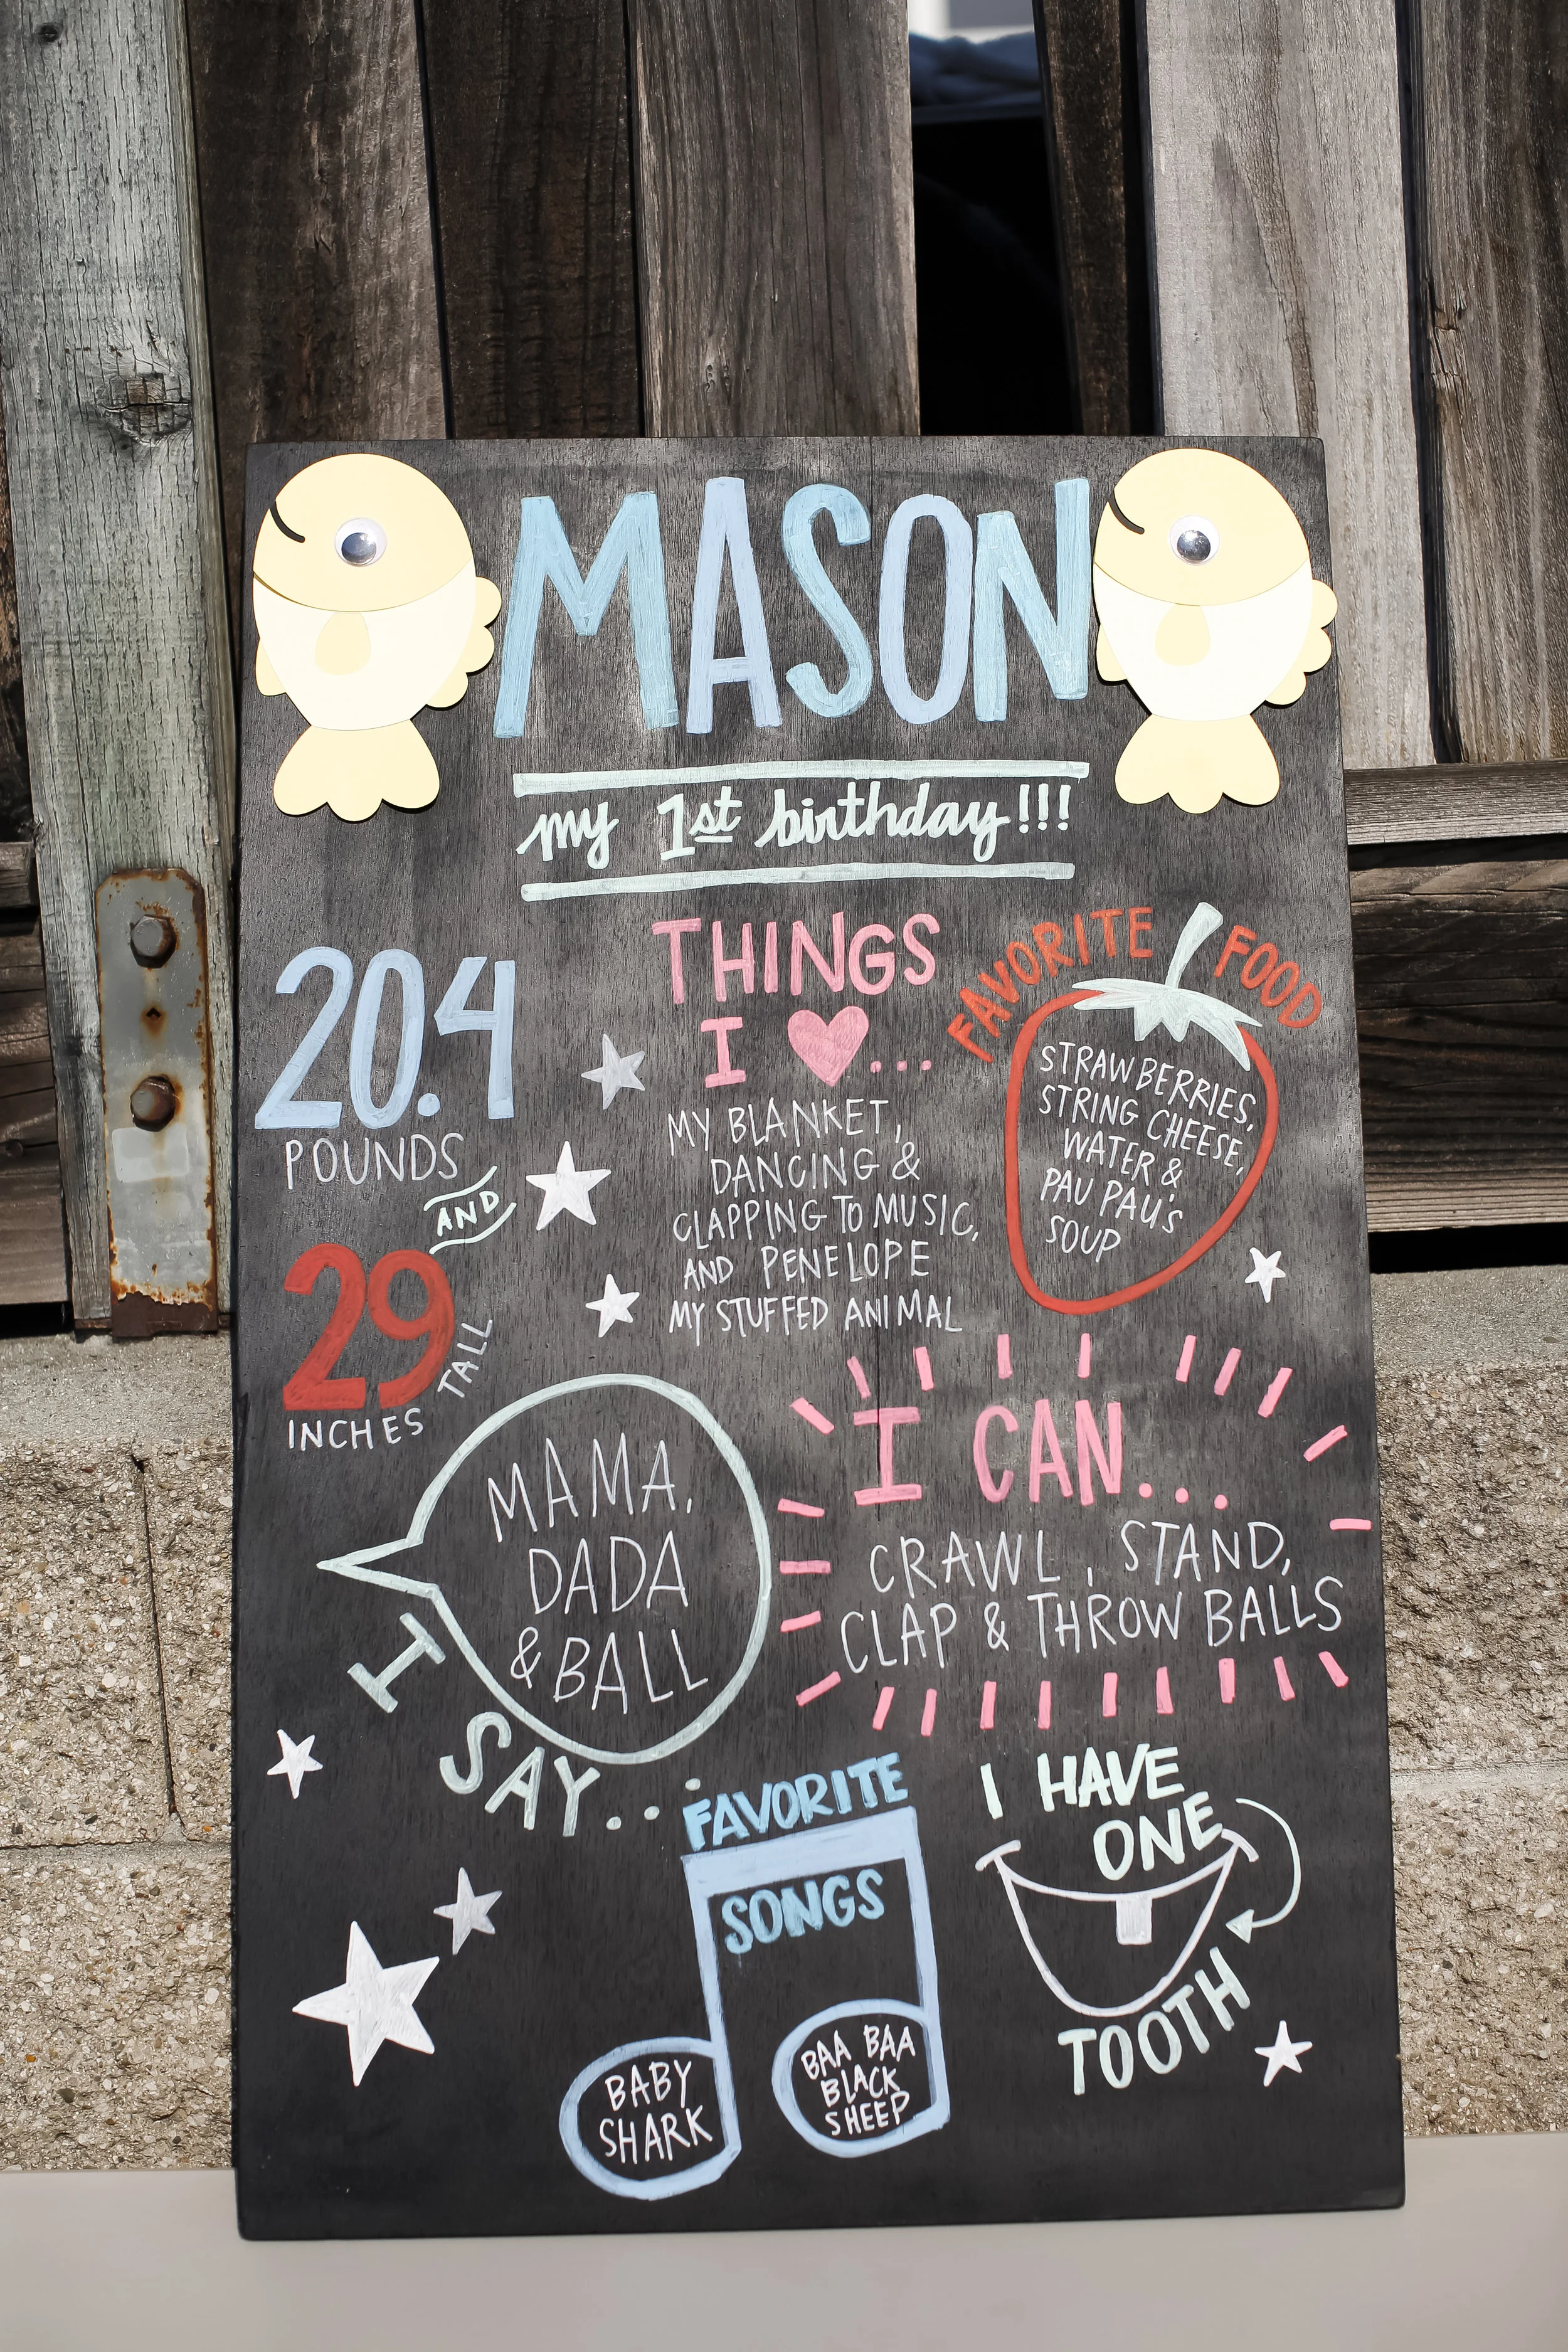 MASON
my 1st birthday!!!
20.4
POUNDS
AND
29
INCHES
TALL
THINGS
I ♥...
MY BLANKET,
DANCING &
CLAPPING TO MUSIC,
AND PENELOPE
MY STUFFED ANIMAL
FAVORITE FOOD
STRAWBERRIES,
STRING CHEESE,
WATER &
PAU PAU'S
SOUP
MAMA,
DADA
& BALL
I SAY...
I CAN...
CRAWL, STAND,
CLAP & THROW BALLS
FAVORITE
SONGS
BABY
SHARK
BAA BAA
BLACK
SHEEP
I HAVE
ONE
TOOTH